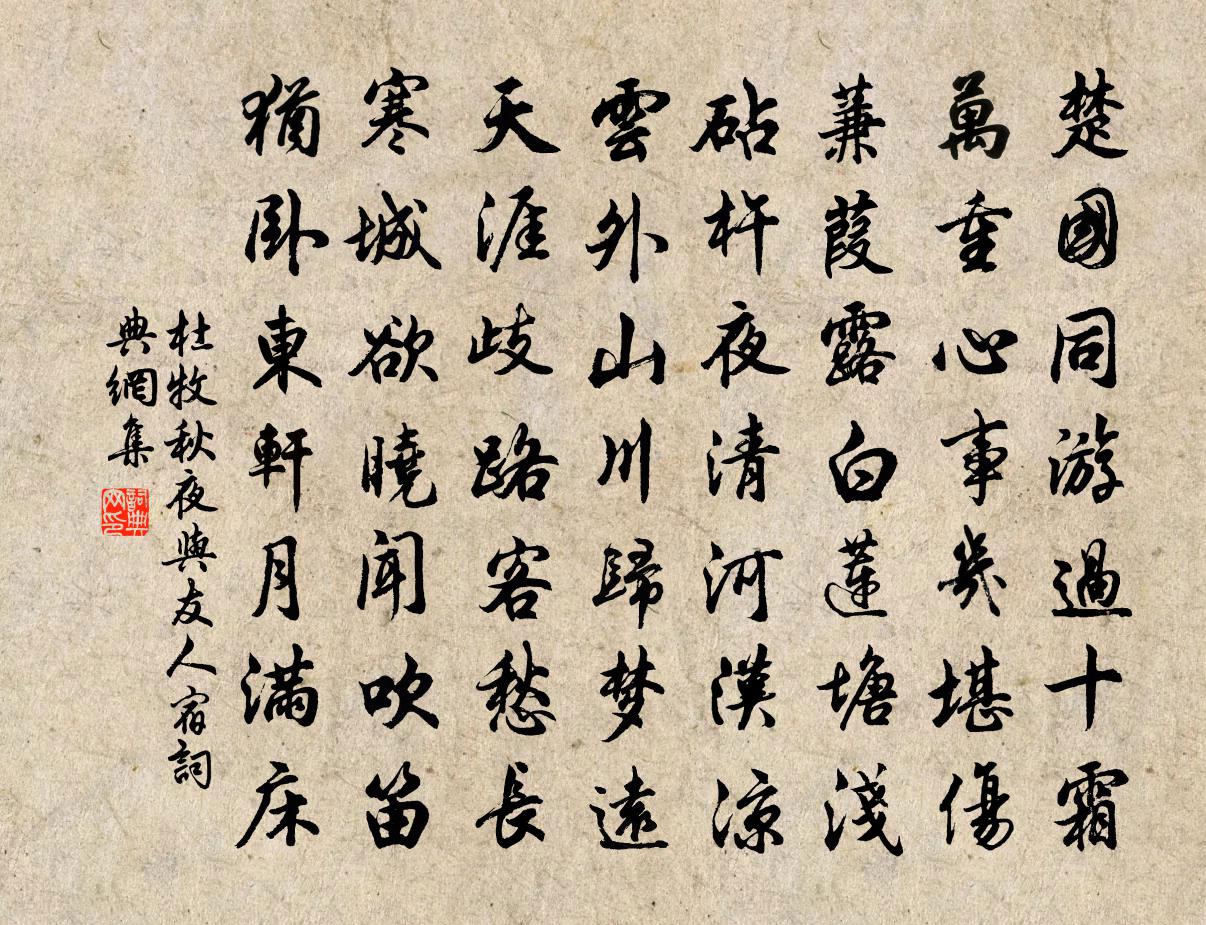 楚國同游過十霜
萬重心事幾堪傷
蒹葭露白蓮塘淺
砧杵夜清河漢涼
雲外山川歸梦遠
天涯歧路客愁長
寒城欲曉聞吹笛
猶卧東軒月滿床
杜牧秋夜與友人宿詞
典網集
詞典
网印